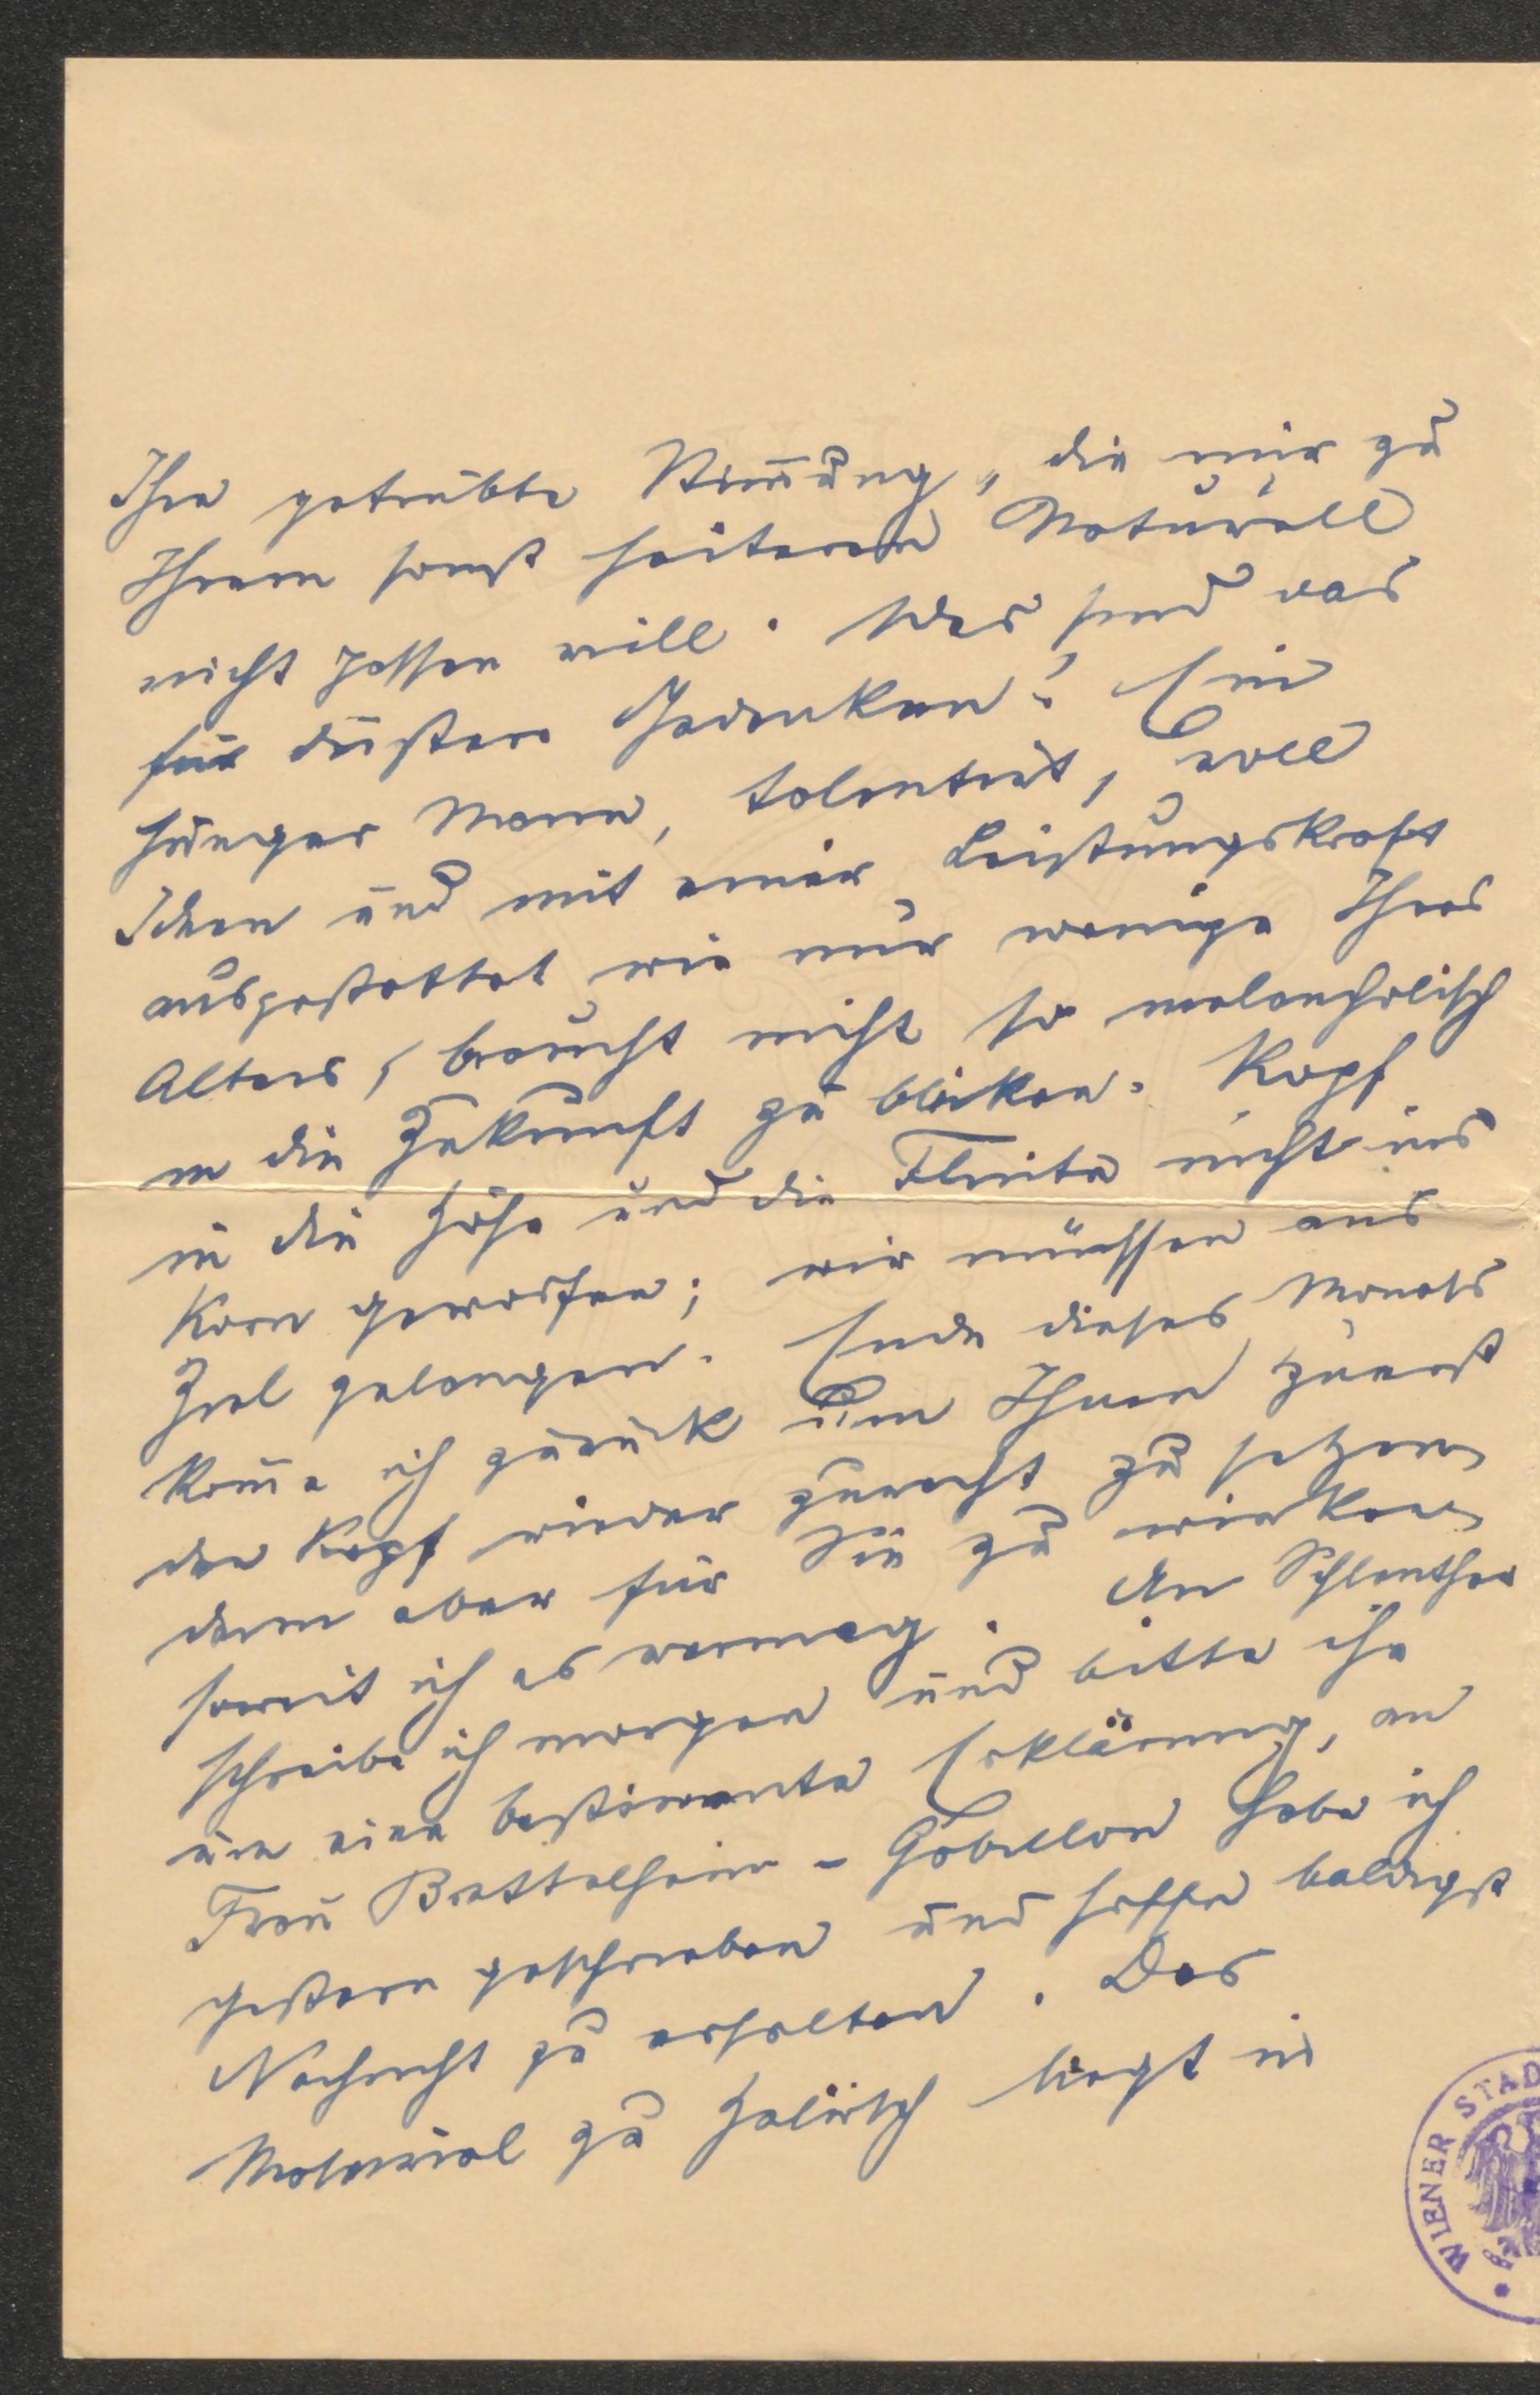 Ihre getrübte Stim̅ung, die mir zu
Ihrem sonst heiteren Naturell
nicht passen will. Was sind das
für düstere Gedanken? Ein
junger Mann, talentirt, voll
Ideen und mit einer Leistungskraft
ausgestattet wie nur wenige Ihres
Alters, braucht nicht so melancholisch
in die Zukunft zu blicken. Kopf
in die Höhe und die Flinte nicht ins
Korn geworfen; wir müssen ans
Ziel gelangen. Ende dieses Monats
kom̅e ich zurück um Ihnen zuerst
den Kopf wieder zurecht zu setzen
dann aber für Sie zu wirken
soweit ich es vermag. An Schlenther
schreibe ich morgen und bitte ihn
um eine bestimmte Erklärung, an
Frau Bettelheim-Gabillon habe ich
gestern geschrieben und hoffe baldigst
Nachricht zu erhalten. Das
Material zu Halirsch liegt in
WIENER STAD